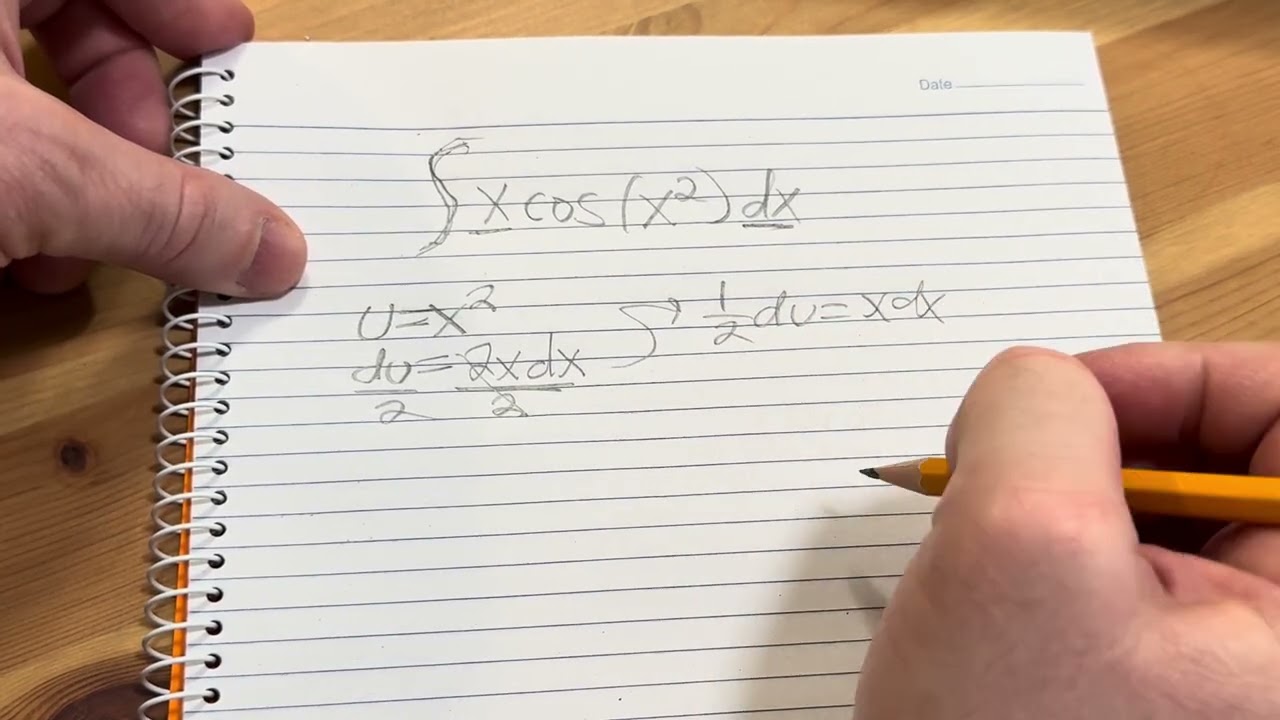 Date
∫ x cos(x²) dx
u=x²
du/2 = 2x dx/2
1/2 du = x dx